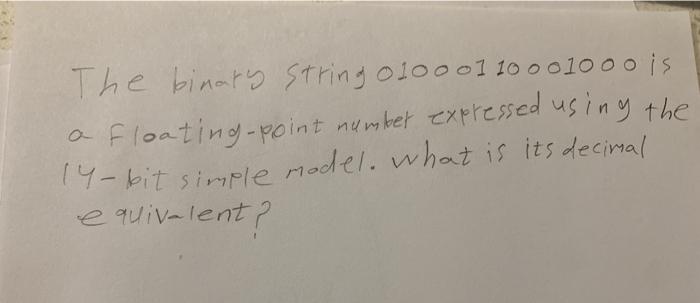 The binary string 01000110001000 is
a floating-point number expressed using the
14-bit simple model. what is its decimal
equivalent?